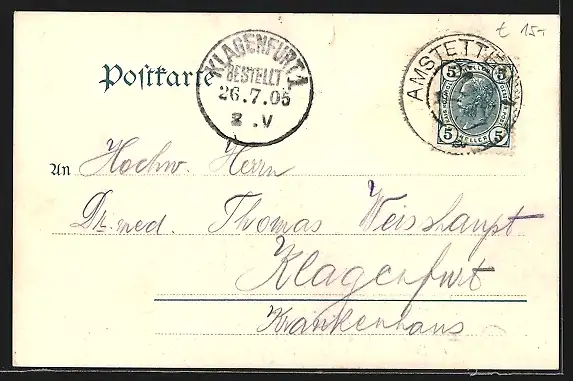 € 15-
Postkarte
KLAGENFURT 1
BESTELLT
26.7.05
2.V
AMSTETTEN
5 5
5 HELLER 5
An Hochw. Herrn
Dr. med. Thomas Weisshaupt
Klagenfurt
Krankenhaus